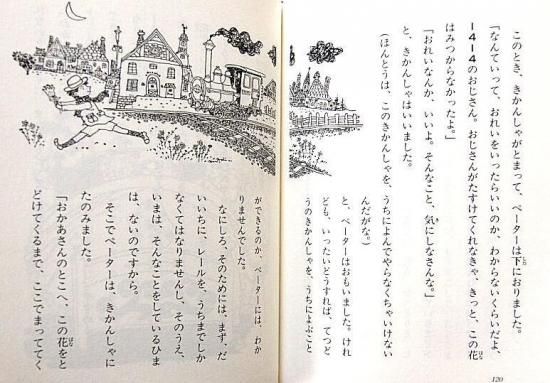 このとき、きかんしゃがとまって、ペーターは下におりました。
「なんていって、おれいをいったらいいのか、わからないくらいだよ、
１４１４のおじさん。おじさんがたすけてくれなきゃ、きっと、この花
はみつからなかったよ。」
「おれいなんか、いいよ。そんなこと、気にしなさんな。」
と、きかんしゃはいいました。
（ほんとうは、このきかんしゃを、うちによんでやらなくちゃいけない
んだがな。）
と、ペーターはおもいました。けれ
ども、いったいどうすれば、てつど
うのきかんしゃを、うちによぶこと
120
ができるのか、ペーターには、わか
りませんでした。
なにしろ、そのためには、まず、だ
いいちに、レールを、うちまでしか
なくてはなりませんし、そのうえ、
いまは、そんなことをしているひま
は、ないのですから。
そこでペーターは、きかんしゃに
たのみました。
「おかあさんのとこへ、この花をと
どけてくるまで、ここでまっててく